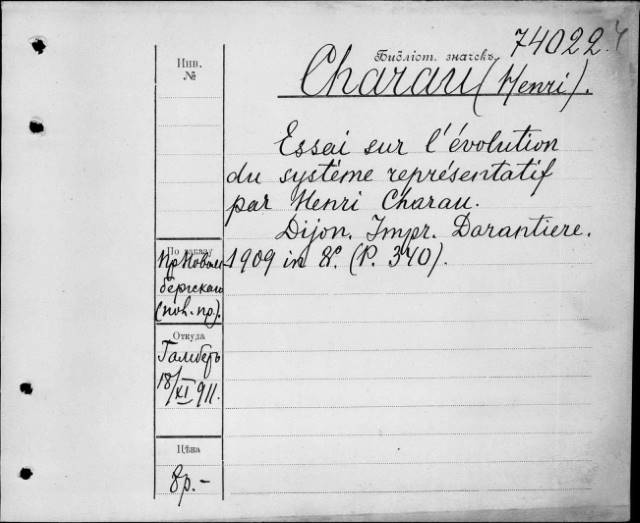 74022
Библіот. значекъ
Инв.
№
Charau (Henri).
Essai sur l'évolution
du système représentatif
par Henri Charau.
Dijon. Impr. Darantiere.
1909 in 8º. (P. 340).
По заказу
Пр Новом
бергскаго
Откуда
18/XI 911.
Цѣна
8р.-